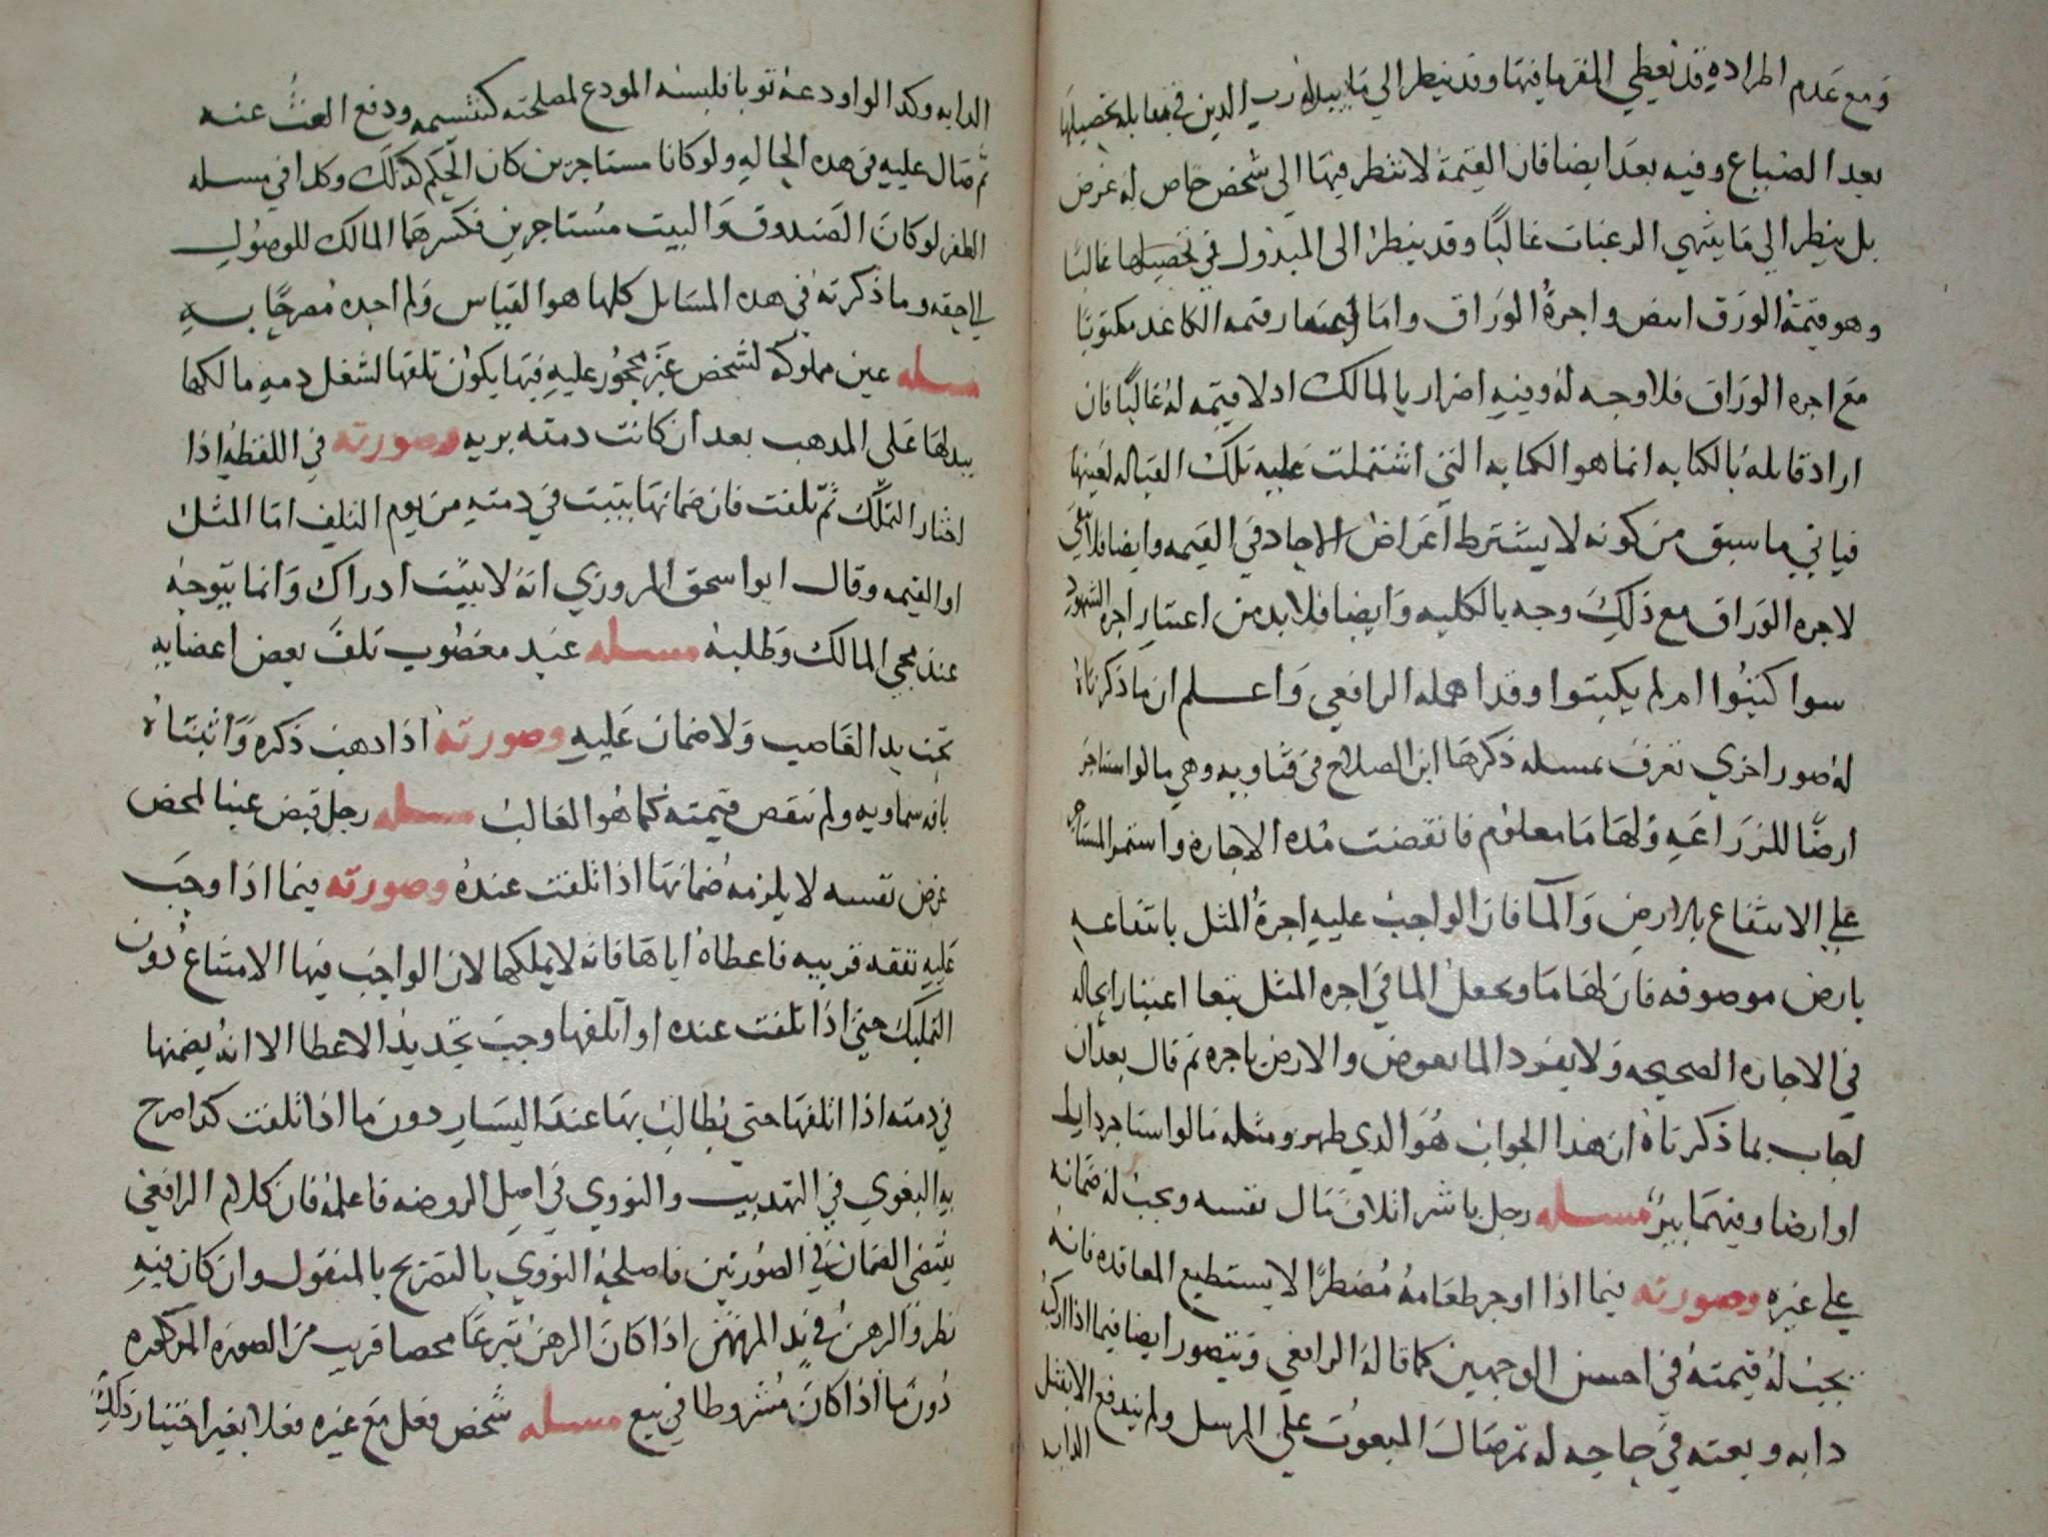 ومع عدم اطراده قد نعطي المغرم ما فيها وقد ينظر الي ما يبدله رب الدين في مقابله تحصيلها
بعد الضياع وفيه بعد ايضا فان القيمة لا ننظر فيها الي شخص خاص له غرض
بل ينظر الي ما ينتهي الرغبات غالبًا وقد ينظر الى المبذول في تحصيلها غالبا
وهو قيمة الورق ابيض واجرة الوراق واما قيمه الكاغد مكتوبا
مع اجره الوراق فلا وجه له وفيه اضرار بالمالك اد لا قيمه له غالبًا فان
اراد قابله بالكتابه انما هو الكتابه التي اشتملت عليه تلك القباله لعينها
فياتي ما سبق من كونه لا يشترط اغراض الاحاد في القيمه وايضا فلا يبقى
لاجره الوراق مع ذلك وجه بالكليه وايضا فلا بد من اعتبار اجره الشهود
سوا كتبوا ام لم يكتبوا وقد اهمله الرافعي واعلم ان ما ذكرناه
له صور اخري تعرف بمسله ذكرها ابن الصلاح في فتاويه وهي ما لو استاجر
ارضًا للزراعه ولها ما معلوم فانقضت مده الاجاره واستمر المستاجر
علي الانتفاع بالارض والما فان الواجب عليه اجرة المثل بانتفاعه
بارض موصوفه فان لها ما ويجعل الما في اجره المثل تبعا اعتبارا بحاله
في الاجاره الصحيحه ولا يفرد الما بعوض والارض باجره ثم قال بعد ان
اجاب بما ذكرناه ان هذا الجواب هو الدي ظهر ومثله ما لو استاجر دارا
او ارضا وفيهما بير مسله رجل باشر اتلاف مال نفسه ويجب له ضمانه
علي غيره وصورته فيما اذا اوجر طعامه مضطرًا لا يستطيع المعاقده فانه
يجب له قيمته في احسن الوجهين كما قاله الرافعي ويتصور ايضا فيما اذا اركبه
دابه وبعثه في حاجه له ثم صال المبعوث علي المرسل ولم يندفع الا بقتل
الدابه
الدابه وكدا لو اودعه ثوبا فلبسه المودع لمصلحته كتشميسه ودفع العث عنه
ثم صال عليه في هده الحاله ولو كانا مستاجرين كان الحكم كذلك وكدا في مسله
الظفر لو كان الصندوق والبيت مستاجرين فكسرهما المالك للوصول
الي حقه وما ذكرته في هده المسايل كلها هو القياس ولم اجده مصرحًا به
مسله عين مملوكه لشخص غير محجور عليه فيها يكون تلفها لشغل دمه مالكها
ببدلها على المدهب بعد ان كانت دمته بريه وصورته في اللقطه اذا
اختار التملك ثم تلفت فان ضمانها يثبت في دمته من يوم التلف اما المثل
او القيمه وقال ابو اسحق المروزي انه لا يثبت ادراك وانما يتوجه
عند مجي المالك وطلبه مسله عبد مغصوب تلف بعض اعضايه
تحت يد الغاصب ولا ضمان عليه وصورته اذا دهب ذكره وانثياه
بافه سماويه ولم تنقص قيمته كما هو الغالب مسله رجل قبض عينا لمحض
غرض نفسه لا يلزمه ضمانها اذا تلفت عنده وصورته فيما اذا وجب
عليه نفقه قريبه فاعطاه اياها فانه لا يملكها لان الواجب فيها الامتناع دون
التمليك حتى اذا تلفت عنده او اتلفها وجب تجديد الاعطا الا انه يضمنها
في دمته اذا اتلفها حتى يطالب بها عند اليسار دون ما اذا تلفت كدا صرح
به البغوي في التهديب والنووي في اصل الروضه فاعلمه فان كلام الرافعي
يقتضى الضمان في الصورتين فاصلحه النووي بالتصريح بالمنقول وان كان فيه
نظر والرهن في يد المرتهن اذا كان الرهن تبرعًا محصا قريب من الصوره المذكوره
دون ما اذا كان مشروطا في بيع مسله شخص فعل مع غيره فعلا بغير اختيار ذلك